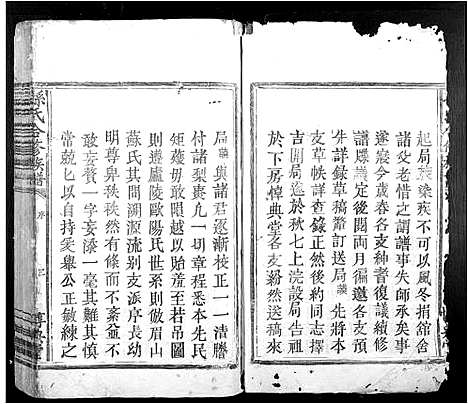 起局族衆疾不可以風冬捐舘舍
諸父老惜之謂譜事失師承矣事
遂寝今歳春各支种耆復議續修
譜牒議定後閱兩月編告各支預
先將本
支草帙詳查錄正然後約同志擇
吉開局迄於秋七上浣設局告祖
於下房幛典堂各支紛然送稿來
局議與諸君逐漸校正一一清謄
付諸梨棗凡一切章程悉本先民
矩矱毋敢隕越以貽羞若吊圖
則遵廬陵歐陽氏世序則倣眉山
蘇氏其間溯源流别支派序長幼
明尊卑秩秩然有條而不紊並不
敢妄贊一字妄漆一毫其難其慎
常兢乜以自持爰舉公正敏練之
孫氏合修族譜
序